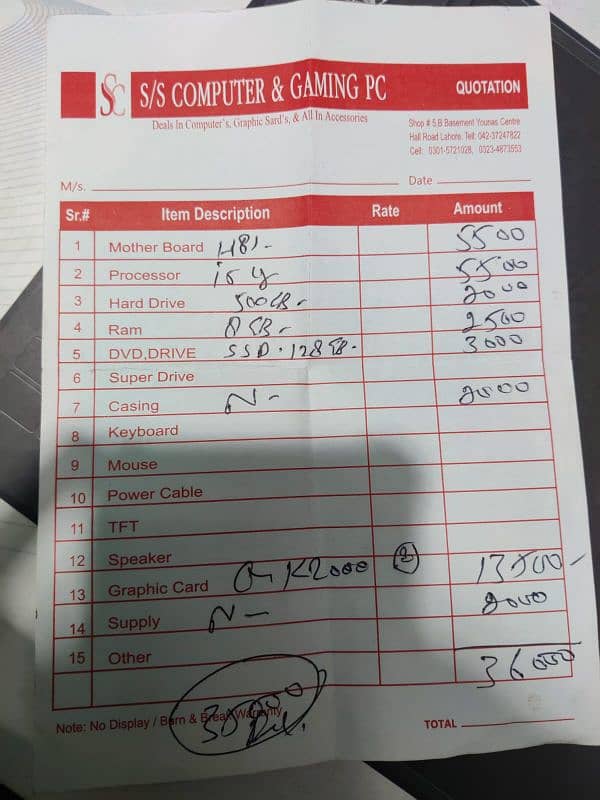 SSC S/S COMPUTER & GAMING PC QUOTATION
Deals In Computer's, Graphic Sard's, & All In Accessories
Shop # 5,B Basement Younas Centre
Hall Road Lahore. Tell: 042-37247822
Cell: 0301-5721028, 0323-4873553
M/s. Date
Sr.# Item Description Rate Amount
1 Mother Board H81- 5500
2 Processor i5 4 5500
3 Hard Drive 500GB- 2000
4 Ram 8GB- 2500
5 DVD,DRIVE SSD.128GB- 3000
6 Super Drive
7 Casing N- 2000
8 Keyboard
9 Mouse
10 Power Cable
11 TFT
12 Speaker
13 Graphic Card K2000 2 13500-
14 Supply N- 2000
15 Other
36000
35000
Note: No Display / Barn & Break Warranty
TOTAL